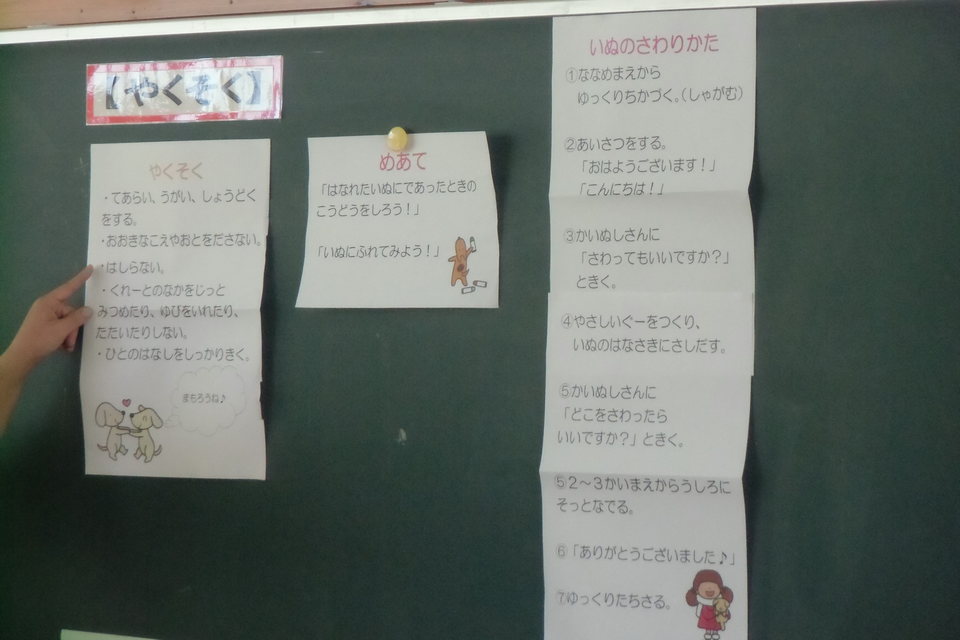 【やくそく】
やくそく
・てあらい、うがい、しょうどく
をする。
・おおきなこえやおとをださない。
・はしらない。
・くれーとのなかをじっと
みつめたり、ゆびをいれたり、
たたいたりしない。
・ひとのはなしをしっかりきく。
まもろうね♪
めあて
「はなれたいぬにであったときの
こうどうをしろう！」
「いぬにふれてみよう！」
いぬのさわりかた
①ななめまえから
ゆっくりちかづく。（しゃがむ）
②あいさつをする。
「おはようございます！」
「こんにちは！」
③かいぬしさんに
「さわってもいいですか？」
ときく。
④やさしいぐーをつくり、
いぬのはなさきにさしだす。
⑤かいぬしさんに
「どこをさわったら
いいですか？」ときく。
⑤２～３かいまえからうしろに
そっとなでる。
⑥「ありがとうございました♪」
⑦ゆっくりたちさる。